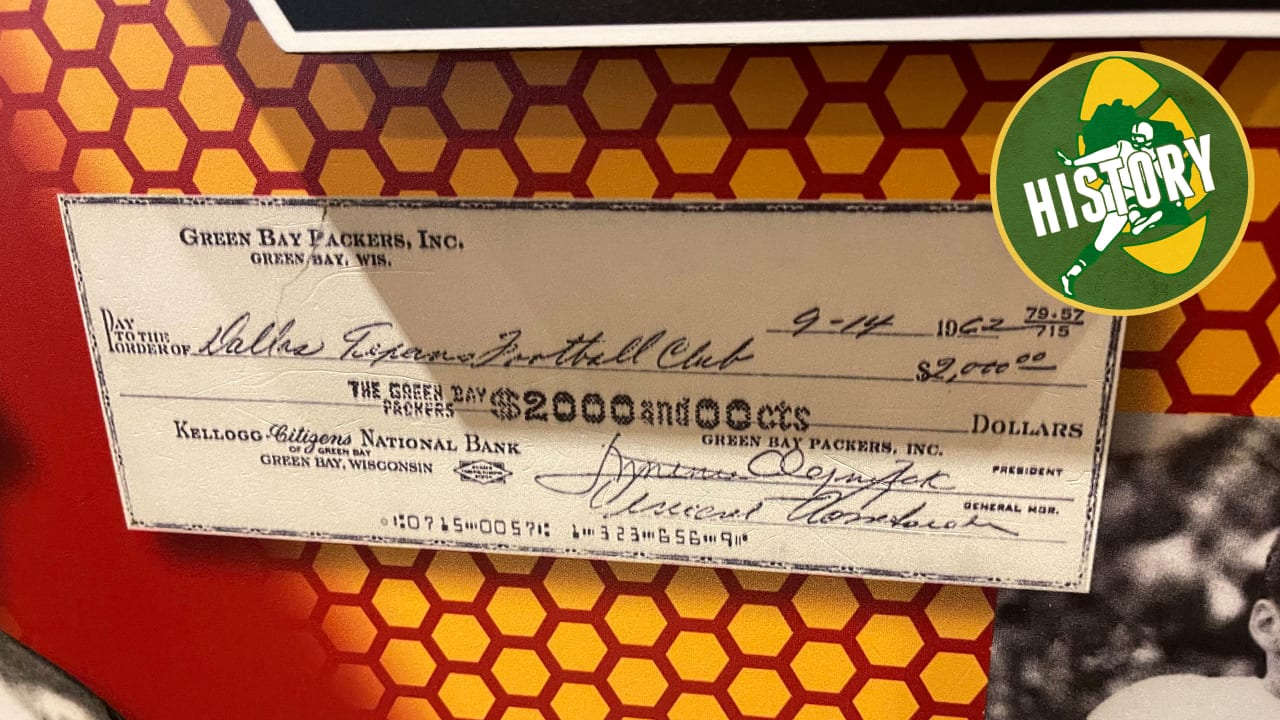 HISTORY
GREEN BAY PACKERS, INC.
GREEN BAY, WIS.
9-14 1962 79-57
715
PAY
TO THE
ORDER OF Dallas Texans Football Club $2,000.00
THE GREEN BAY
PACKERS $2000and00cts DOLLARS
KELLOGG Citizens NATIONAL BANK
OF GREEN BAY
GREEN BAY, WISCONSIN
GREEN BAY PACKERS, INC.
PRESIDENT
GENERAL MGR.
⑆0715⑉0057⑆ 1⑈323⑈656⑈9⑈